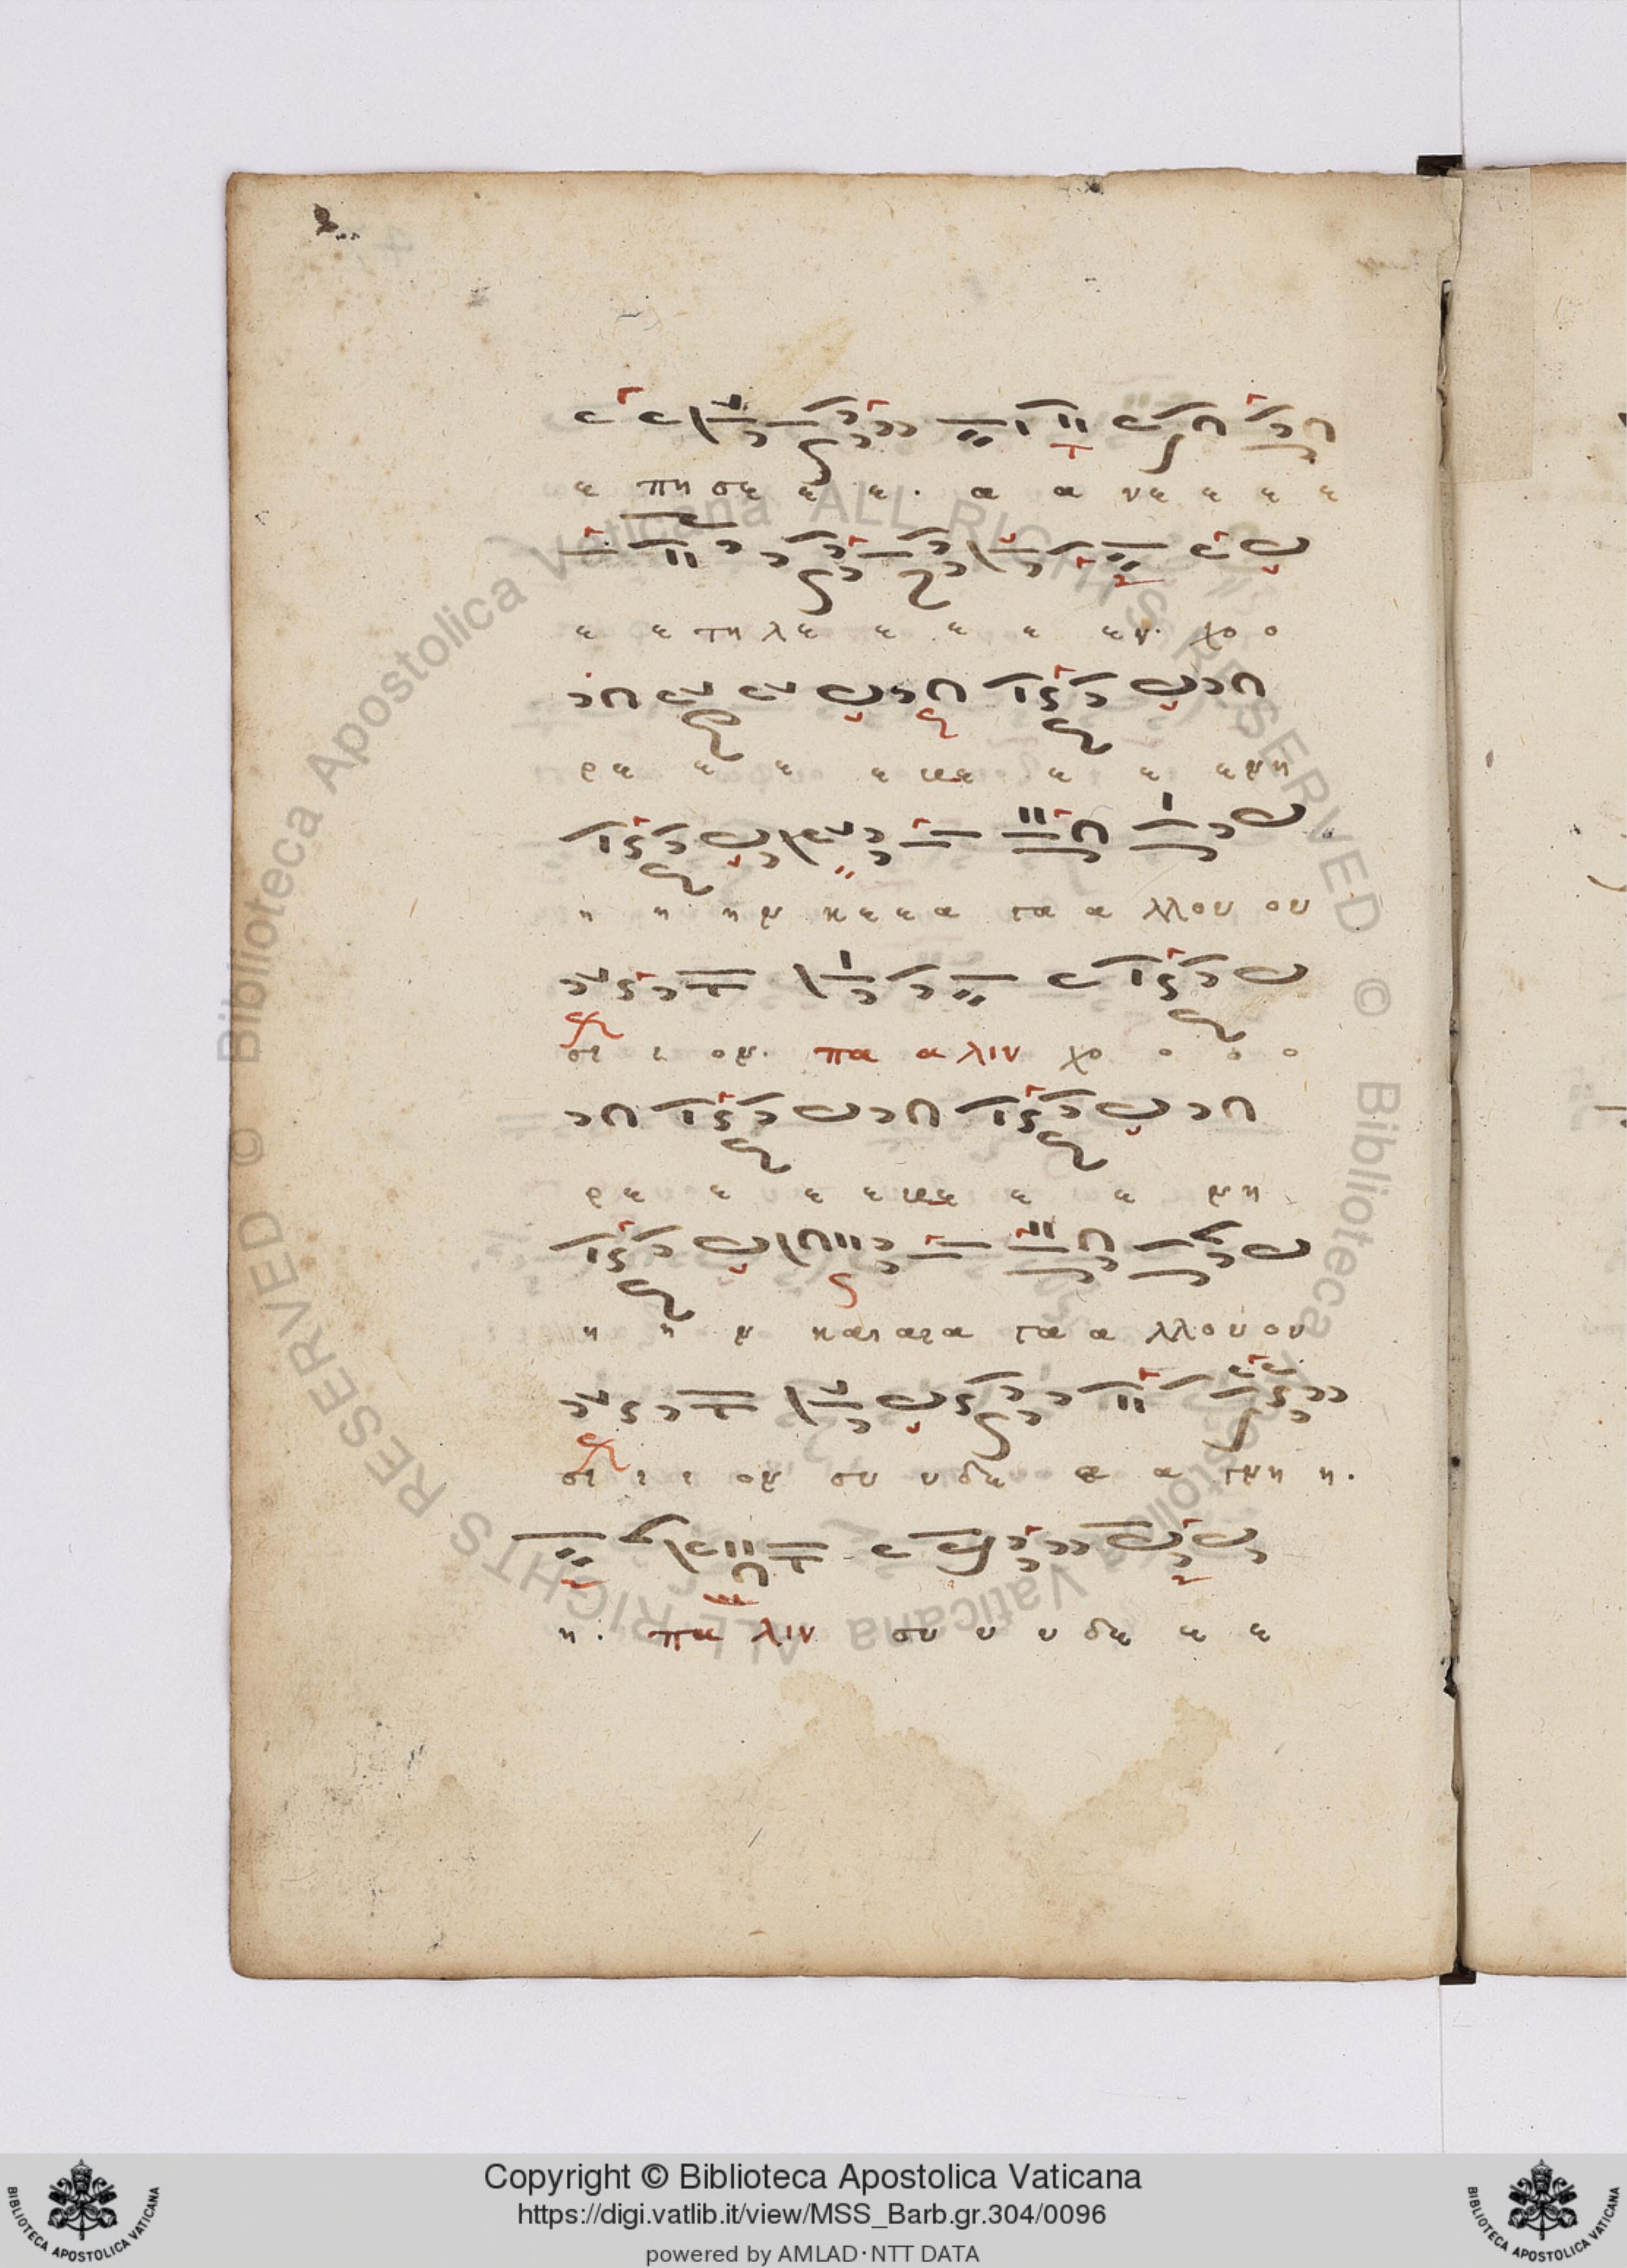 ε πη σε ε ε. α α νε ε ε ε
ε ε τη λε ε ε ε εν. χο ο
ρε ε ε ε με ε ε ε νη
η η ην κε ε α τα α λλου ου
σι ι ον. πα α λιν χο ο ο ο
ρε ε ε ε με ε ε νη
η η ν και αρα τα α λλου ου
σι ι ι ον συ υ δε α τμη η.
η. πα λιν συ υ υ δε ε ε
Biblioteca Apostolica Vaticana ALL RIGHTS RESERVED ©
Biblioteca Apostolica Vaticana ALL RIGHTS RESERVED ©
Copyright © Biblioteca Apostolica Vaticana
https://digi.vatlib.it/view/MSS_Barb.gr.304/0096
powered by AMLAD·NTT DATA
BIBLIOTECA APOSTOLICA VATICANA
BIBLIOTECA APOSTOLICA VATICANA